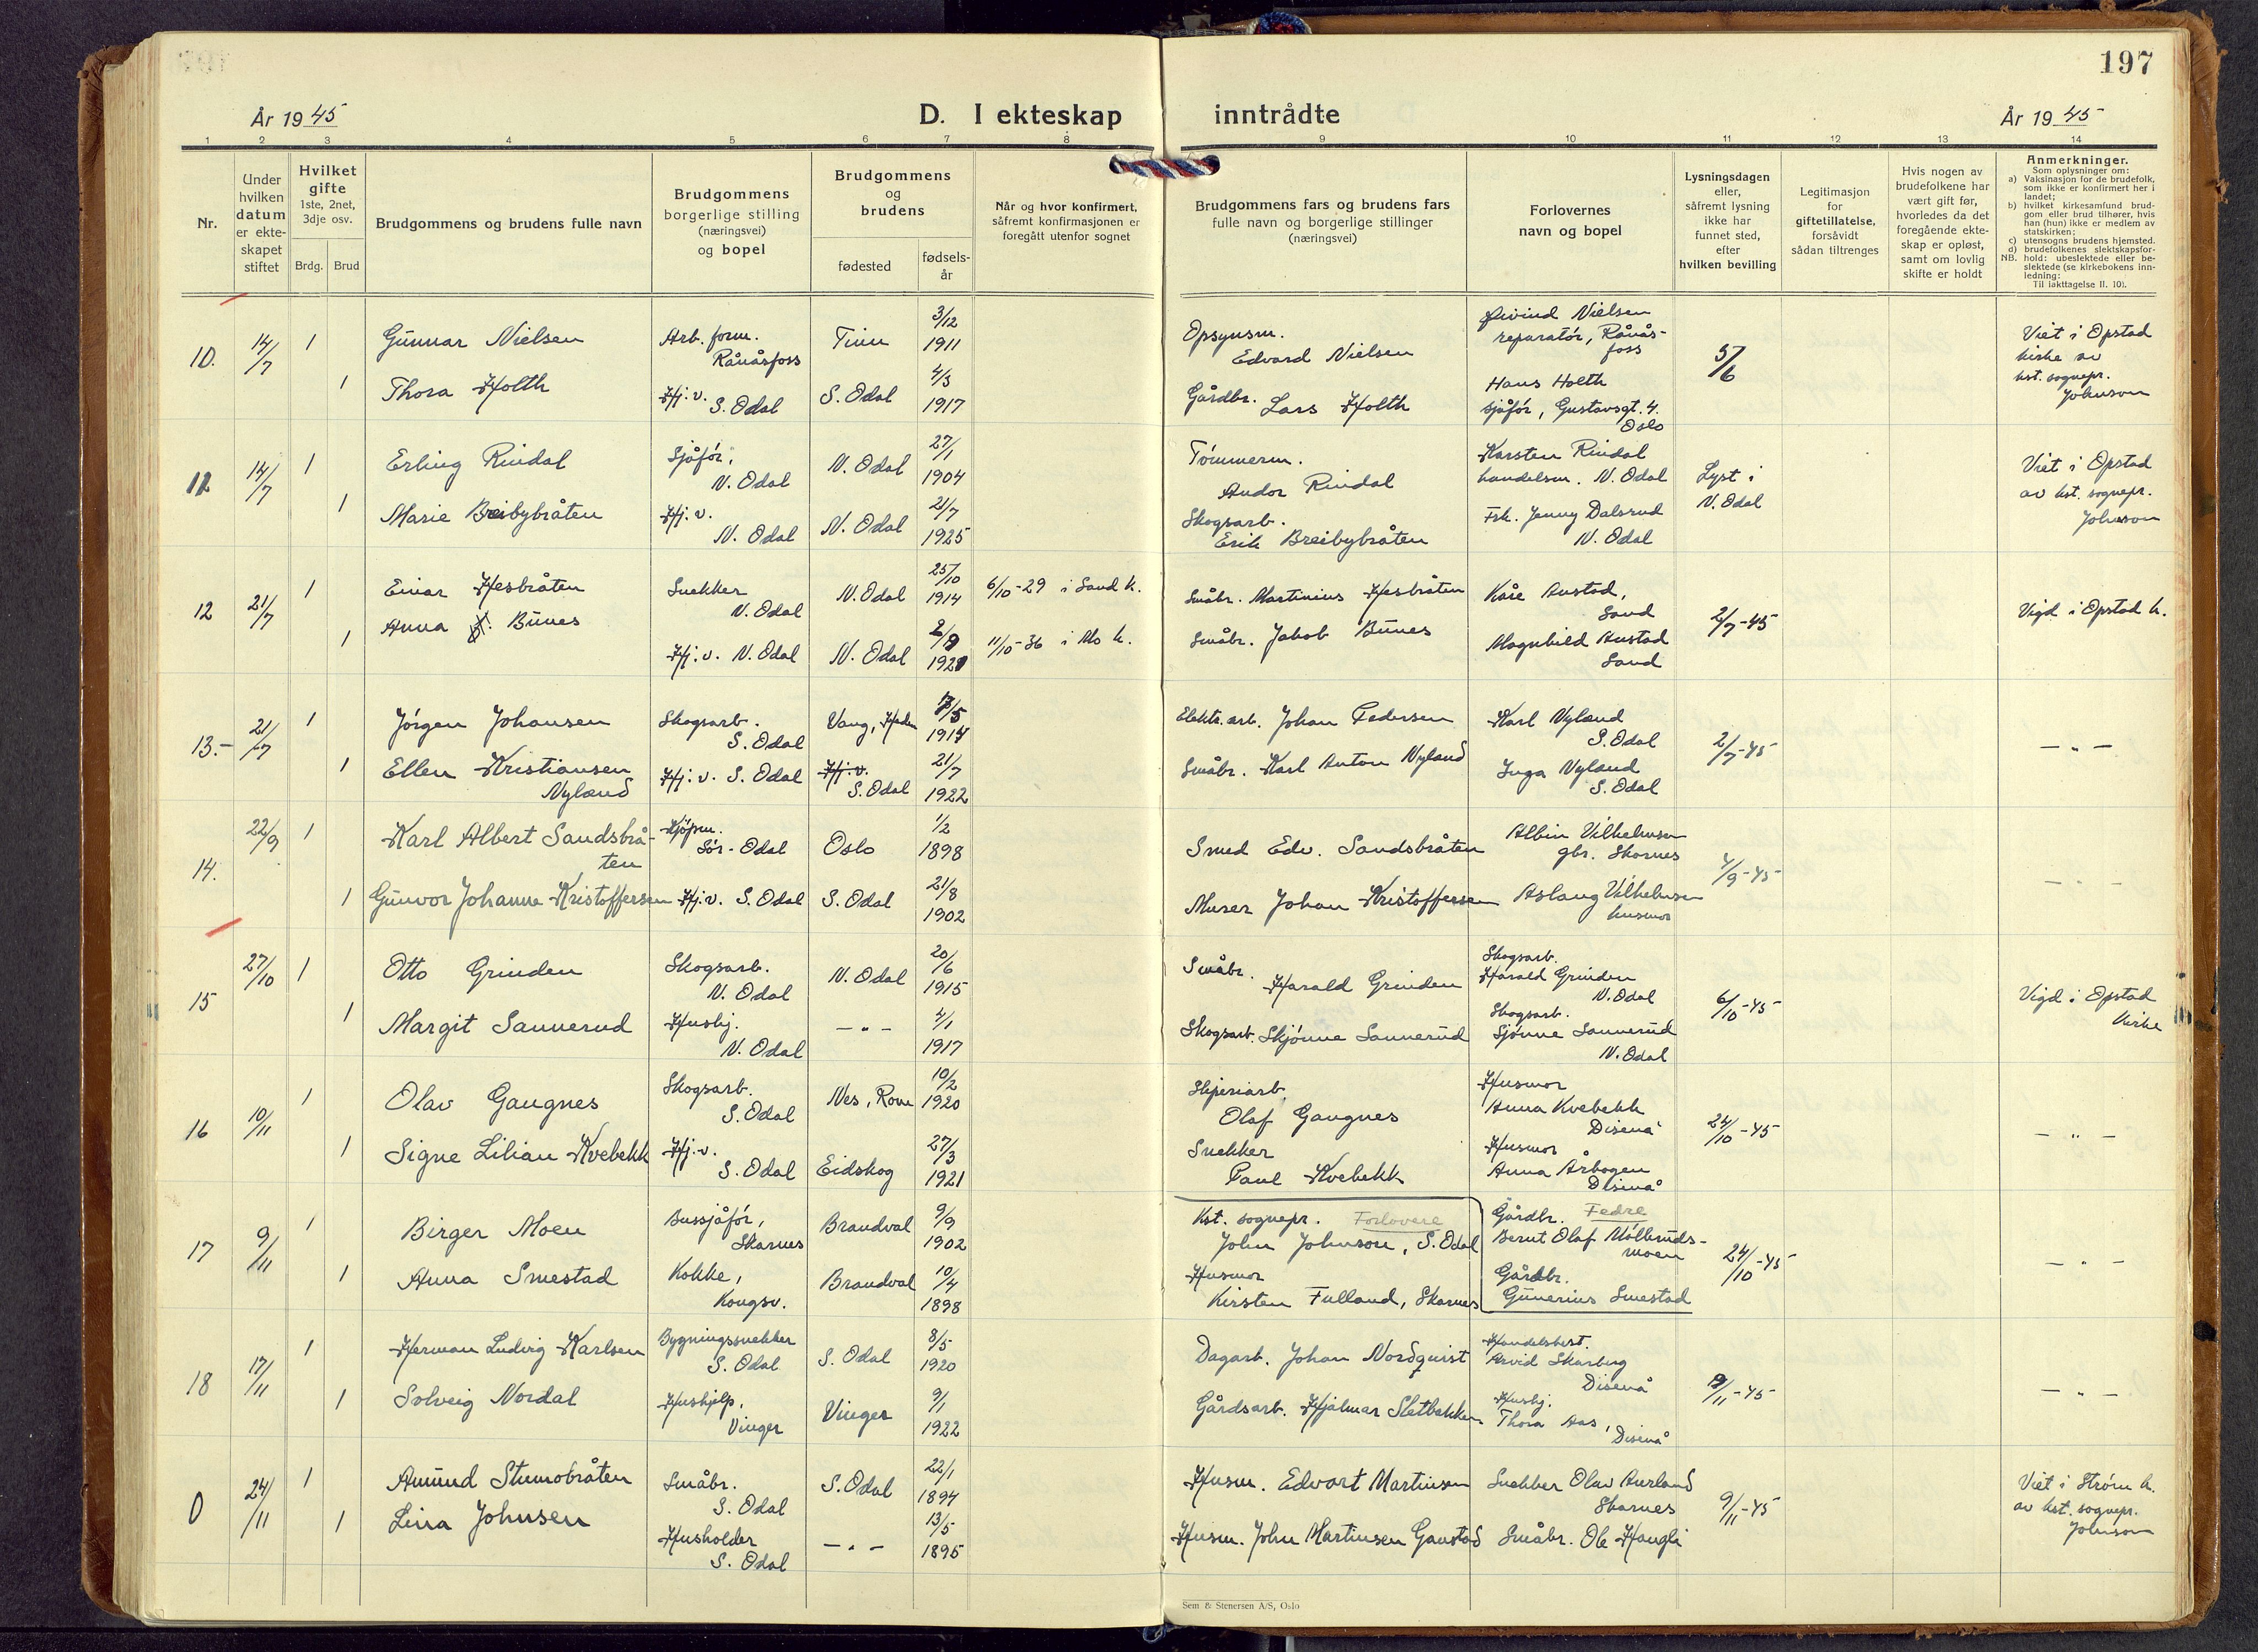 197
År 1945
D. I ekteskap inntrådte
År 1945
1 2 3 4 5 6 7 8 9 10 11 12 13 14
Nr.
Under
hvilken
datum
er ekte-
skapet
stiftet
Hvilket
gifte
1ste, 2net,
3dje osv.
Brdg. Brud
Brudgommens og brudens fulle navn
Brudgommens
borgerlige stilling
(næringsvei)
og bopel
Brudgommens
og
brudens
fødested
fødsels-
år
Når og hvor konfirmert,
såfremt konfirmasjonen er
foregått utenfor sognet
Brudgommens fars og brudens fars
fulle navn og borgerlige stillinger
(næringsvei)
Forlovernes
navn og bopel
Lysningsdagen
eller,
såfremt lysning
ikke har
funnet sted,
efter
hvilken bevilling
Legitimasjon
for
giftetillatelse,
forsåvidt
sådan tiltrenges
Hvis nogen av
brudefolkene har
vært gift før,
hvorledes da det
foregående ekte-
skap er opløst,
samt om lovlig
skifte er holdt
Anmerkninger.
Som oplysninger om:
a) Vaksinasjon for de brudefolk,
som ikke er konfirmert her i
landet;
b) hvilket kirkesamfund brud-
gom eller brud tilhører, hvis
han (hun) ikke er medlem av
statskirken;
c) utensogns brudens hjemsted.
d) brudefolkenes slektskapsfor-
NB. hold: ubeslektede eller be-
slektede (se kirkebokens inn-
ledning:
Til iakttagelse II. 10).
10. 14/7 1 Gunnar Nielsen Arb. form. Rånåsfoss Tinn 3/12 1911
Opsynsm. Edvard Nielsen
Øivind Nielsen
reparatör, Rånås-
foss
5/6
Viet i Opstad
kirke av
kst. sognepr.
Johnson
1 Thora Holth Hj.v. S. Odal S. Odal 4/3 1917
Gårdbr. Lars Holth
Hans Holth
sjåför, Gustavsgt. 4.
Oslo
11 14/7 1 Erling Rindal Sjåför, N. Odal N. Odal 27/1 1904
Tömmerm. Andor Rindal
Karsten Rindal
handelsm. N. Odal
Lyst i
N. Odal
Viet i Opstad
av kst. sognepr.
Johnson
1 Marie Breibybråten Hj.v. N. Odal N. Odal 21/7 1925
Skogsarb. Erik Breibybråten
Frk. Jenny Dalsrud
N. Odal
12 21/7 1 Einar Hesbråten Snekker N. Odal N. Odal 25/10 1914 6/10-29 i Sand k.
Småbr. Martinius Hesbråten
Kåre Austad,
Sand
2/7-45
Vigd i Opstad k.
1 Anna Bünes Hj.v. N. Odal N. Odal 11/10-36 i Mo k.
Småbr. Jakob Bünes
Magnhild Austad
Sand
13.- 21/7 1 Jörgen Johansen Skogsarb. S. Odal Vang, Hedm
Elektr. arb. Johan Pedersen
Karl Nyland
S. Odal
2/7-45
— " —
1 Ellen Kristiansen Nyland Hj.v. S. Odal Hj.v. S. Odal 21/7 1922
Småbr. Karl Anton Nyland
Inga Nyland
S. Odal
14. 22/9 1 Karl Albert Sandsbrå-
ten Kjöpm. Sör-Odal Oslo 1/2 1898
Smed Edv. Sandsbråten
Albin Vilhelmsen
gbr. Skarnes
4/9-45
— " —
1 Gunvor Johanne Kristoffersen Hj.v. S. Odal S. Odal 21/8 1902
Murer Johan Kristoffersen
Aslaug Vilhelmsen
husmor
15 27/10 1 Otto Grinden Skogsarb. N. Odal N. Odal 20/6 1915
Småbr. Harald Grinden
Skogsarb.
Harald Grinden
N. Odal
6/10-45
Vigd i Opstad
kirke
1 Margit Sannerud Hushj. N. Odal — " — 4/1 1917
Skogsarb. Skjönne Sannerud
Skogsarb.
Sjönne Sannerud
N. Odal
16 10/11 1 Olav Gaugnes Skogsarb. S. Odal Nes, Rom 10/2 1920
Sliperiarb. Olaf Gaugnes
Husmor
Anna Kvebekk
Disenå
24/10-45
— " —
1 Signe Lilian Kvebekk Hj.v. S. Odal Eidskog 27/3 1921
Snekker Paul Kvebekk
Husmor
Anna Årbogen
Disenå
17 9/11 1 Birger Moen Bussjåför, Skarnes Brandval 9/9 1902
Kst. sognepr. Forlovere
John Johnson, S. Odal
Gårdbr. Fedre
Bernt Olaf Möllerüds-
moen
24/10-45
— " —
1 Anna Smestad Kokke, Kongsv. Brandval 10/4 1898
Husmor
Kirsten Fulland, Skarnes
Gårdbr.
Gunerius Smestad
18 17/11 1 Herman Ludvig Karlsen Bygningssnekker S. Odal S. Odal 8/5 1920
Dagarb. Johan Nordquist
Handelsbest.
Arvid Skarberg
Disenå
9/11-45
— " —
1 Solveig Nordal Hushjelp, Vinger Vinger 9/1 1922
Gårdsarb. Hjalmar Sletbakken
Hushj.
Thora Aas,
Disenå
0 24/11 1 Amund Stumobråten Småbr. S. Odal S. Odal 22/1 1894
Husm. Edvart Martinsen
Snekker Olav Aurland
Skarnes
9/11-45
Viet i Strøm k.
av kst. sognepr.
Johnson
1 Lina Johnsen Husholder S. Odal — " — 13/5 1895
Husm. John Martinsen Gaustad
Småbr. Ole Haugli
Sem & Stenersen A/S, Oslo